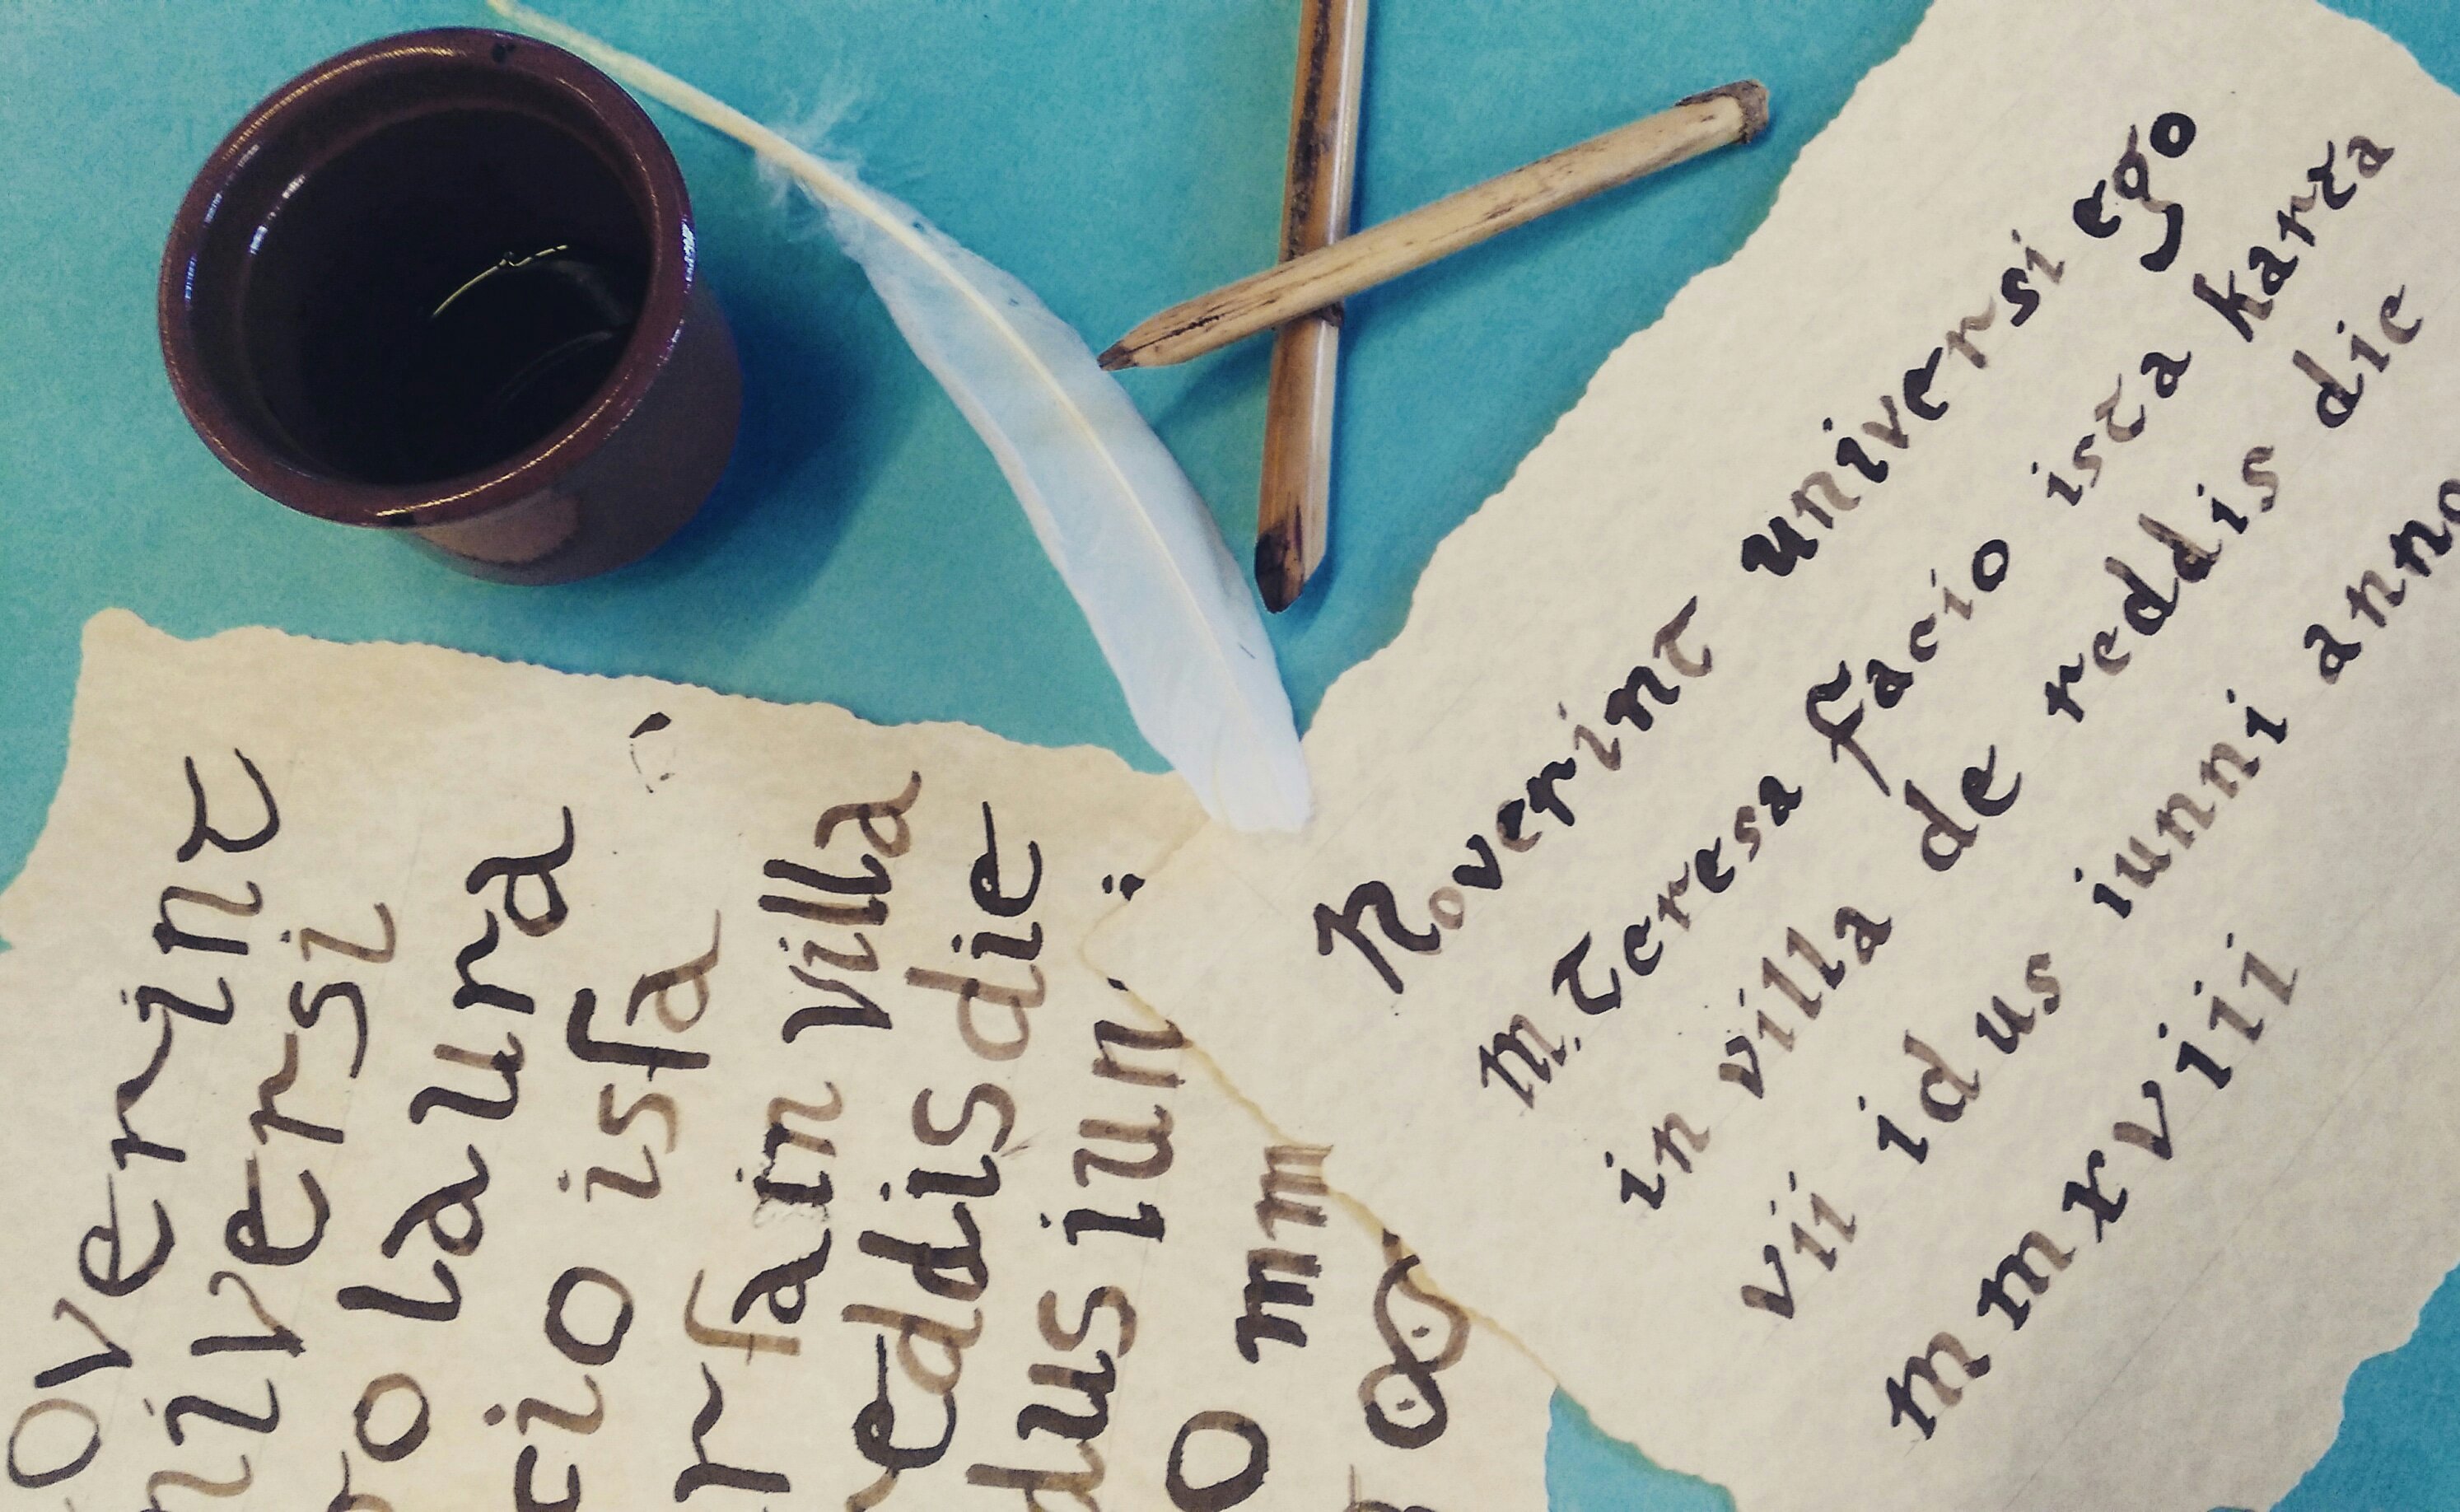 overint
niversi
o laura
cio isfa
rfa in villa
eddis die
dus iun
o mm
Noverint universi ego
m. teresa facio ista karta
in villa de reddis die
vii idus iunni anno
mmxviii